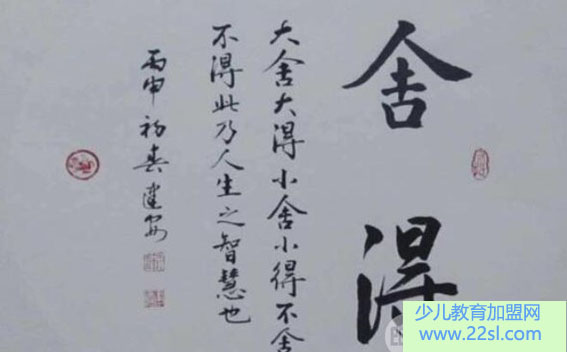 舍得
大舍大得小舍小得不舍
不得此乃人生之智慧也
丙申初春建安
少儿教育加盟网
www.22sl.com